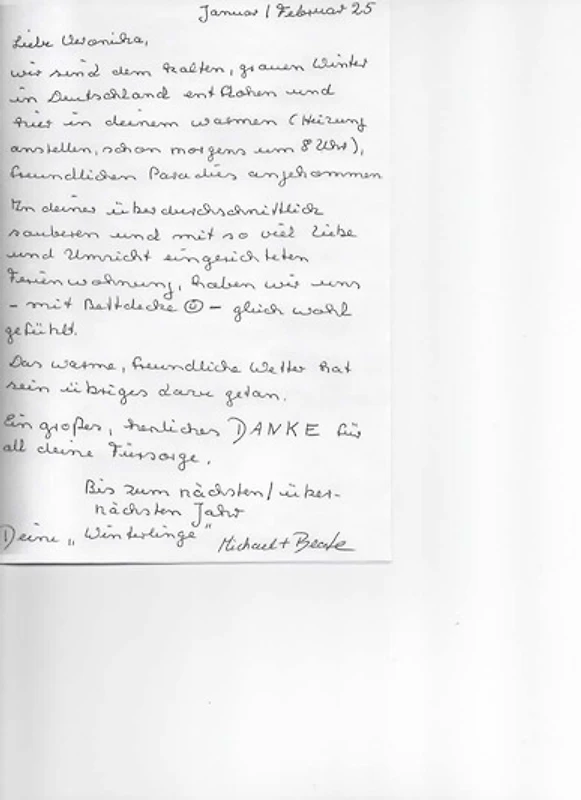 Januar / Februar 25
Liebe Veronika,
wir sind dem kalten, grauen Winter
in Deutschland entflohen und
hier in deinem warmen (Heizung
anstellen, schon morgens um 8 Uhr),
freundlichen Paradies angekommen
In deiner überdurchschnittlich
sauberen und mit so viel Liebe
und Umsicht eingerichteten
Ferienwohnung, haben wir uns
- mit Bettdecke ☺ - gleich wohl
gefühlt.
Das warme, freundliche Wetter hat
sein übriges dazu getan.
Ein großes, herzliches DANKE für
all deine Fürsorge.
Bis zum nächsten / über-
nächsten Jahr
Deine „Winterlinge"
Michael + Beate